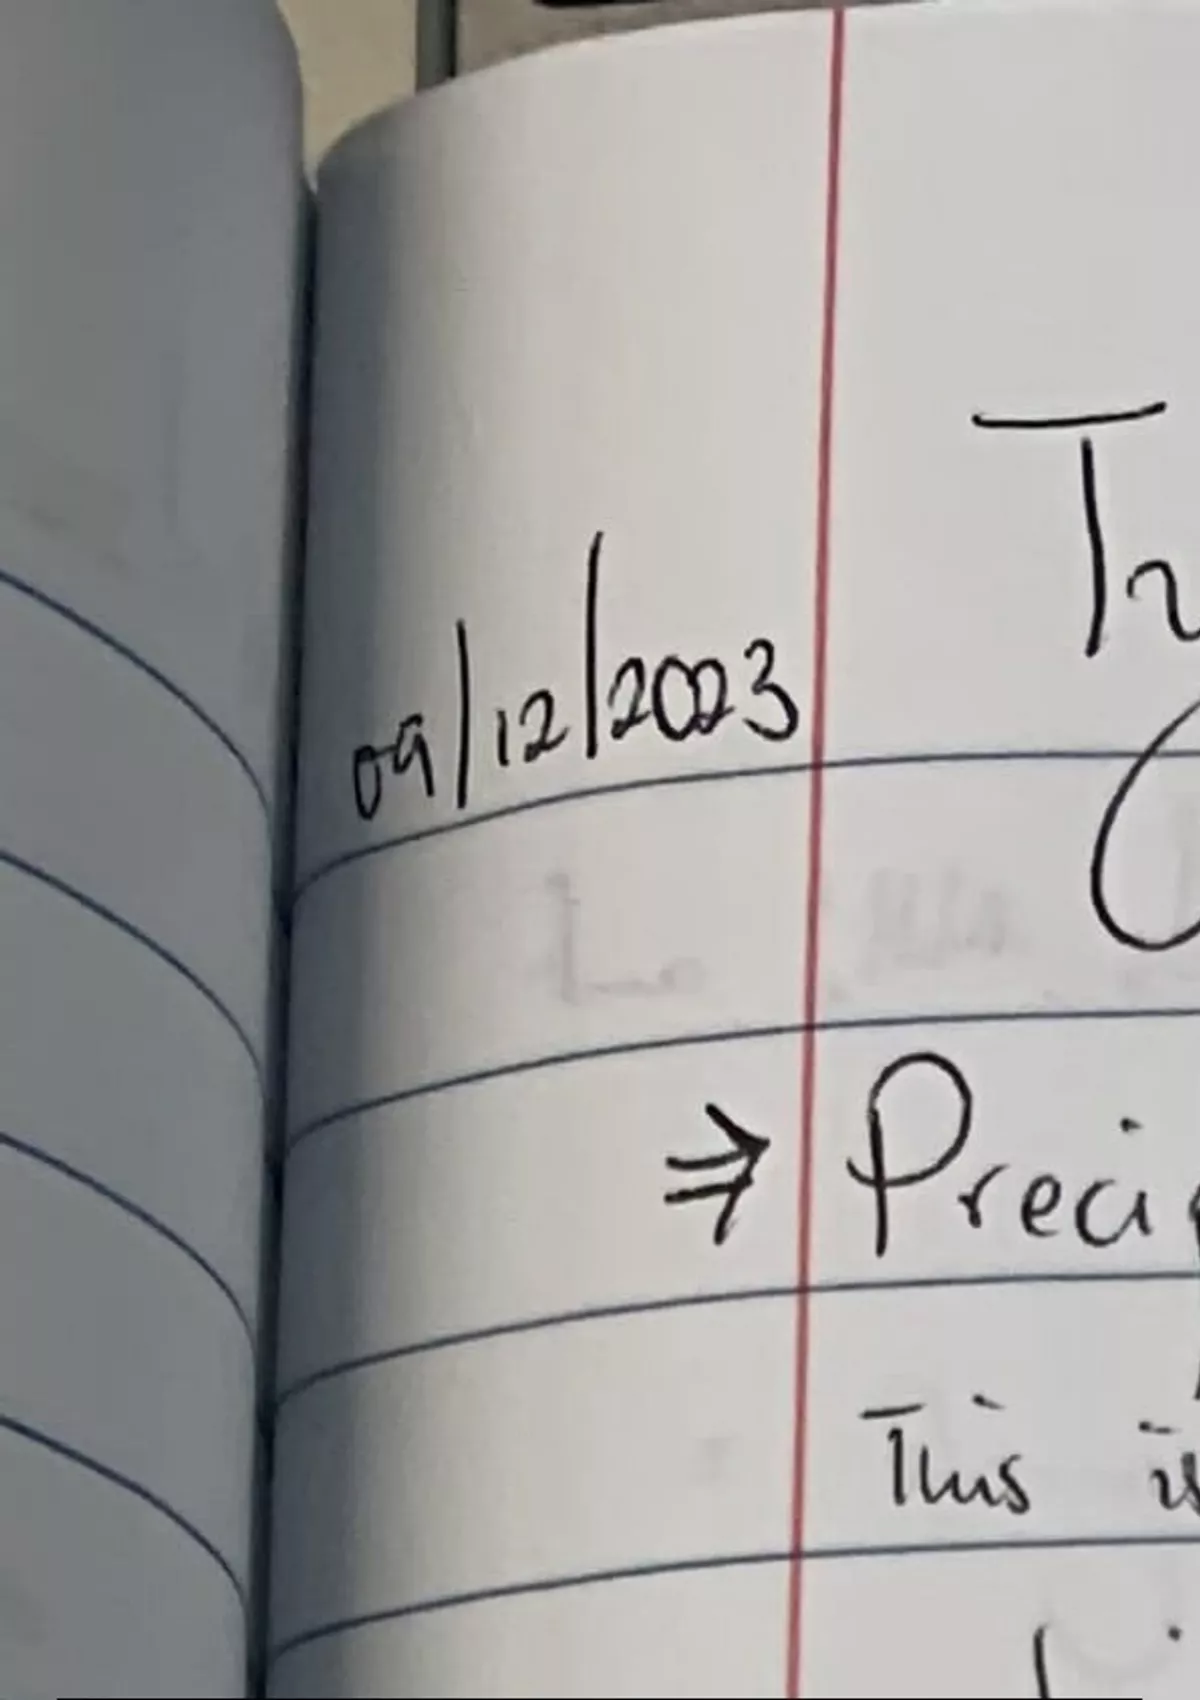 09/12/2023
⇒ Preci
This is